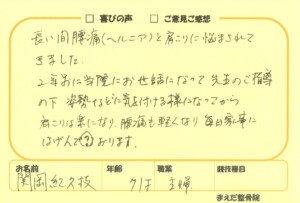 □ 喜びの声 □ ご意見ご感想
長い間腰痛(ヘルニア)と肩こりに悩まされて
きました。
2年前に当院にお世話になって先生のご指導
の下 姿勢などに気を付ける様になってから
肩こりは楽になり、腰痛も軽くなり毎日家事に
はげんでおります。
お名前 年齢 職業 競技種目
関岡 紀久枝 才 主婦
まえだ整骨院